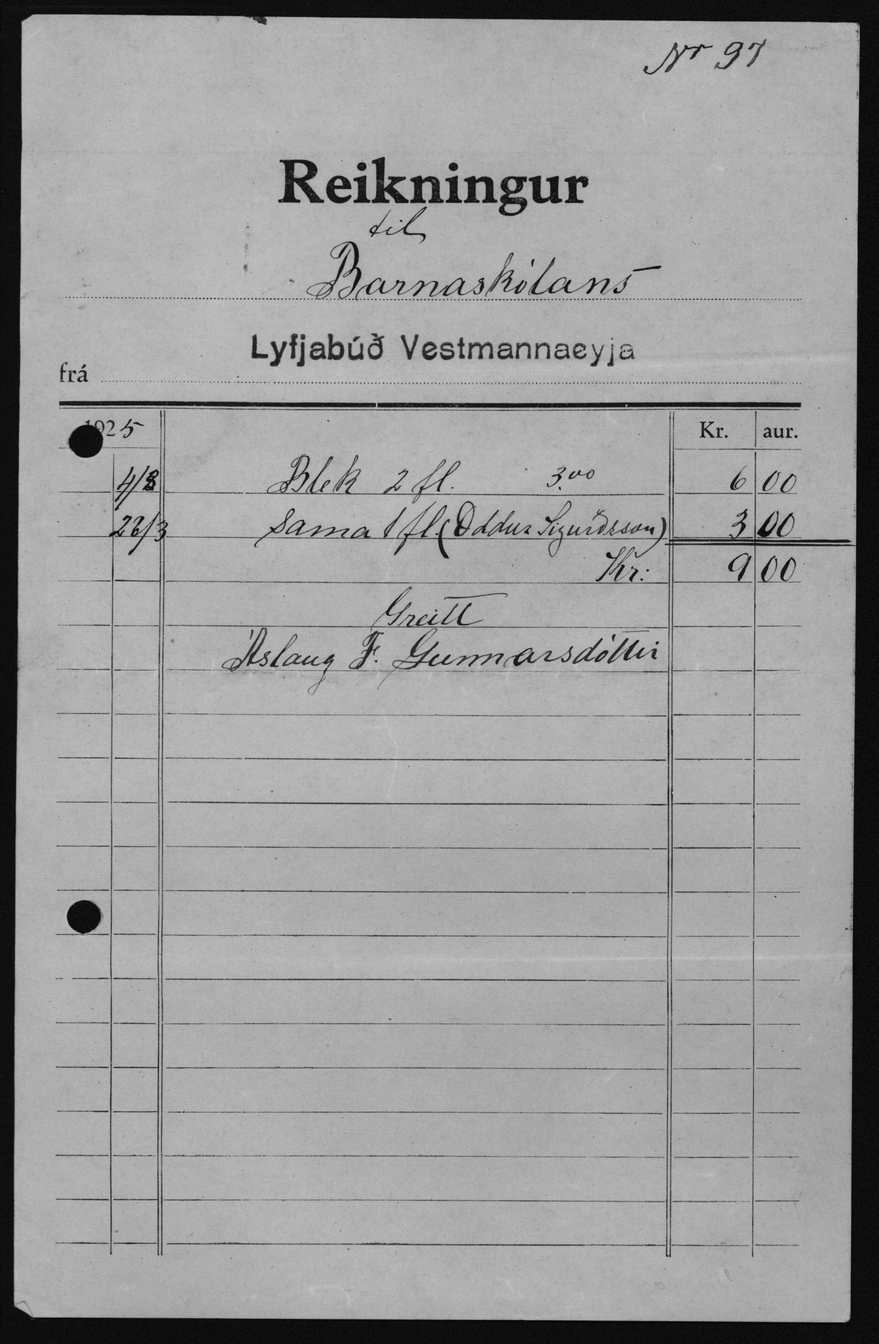 Nr 97
Reikningur
til
Barnaskólans
Lyfjabúð Vestmannaeyja
frá
1925 Kr. aur.
Blek 2 fl. 3.00 6 00
Sama 1 fl. (Oddur Sigurðsson) 3 00
Kr: 9 00
Greitt
Áslaug F. Gunnarsdóttir